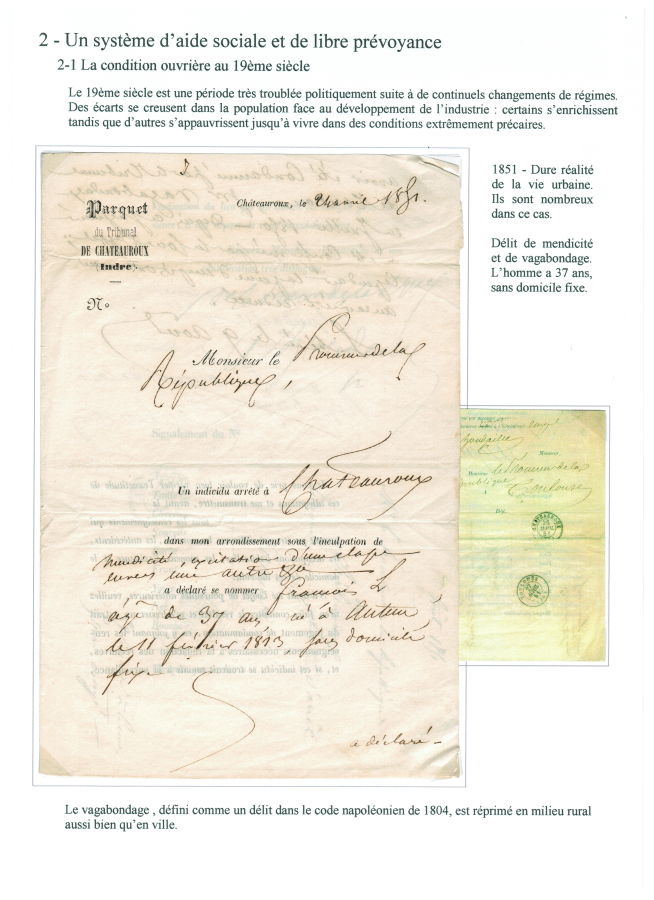 2 - Un système d'aide sociale et de libre prévoyance
2-1 La condition ouvrière au 19ème siècle
Le 19ème siècle est une période très troublée politiquement suite à de continuels changements de régimes.
Des écarts se creusent dans la population face au développement de l'industrie : certains s'enrichissent
tandis que d'autres s'appauvrissent jusqu'à vivre dans des conditions extrêmement précaires.
1851 - Dure réalité
de la vie urbaine.
Ils sont nombreux
dans ce cas.
Délit de mendicité
et de vagabondage.
L'homme a 37 ans,
sans domicile fixe.
Parquet
du Tribunal
DE CHATEAUROUX
(Indre)
Châteauroux, le 24 avril 1851.
N°
Monsieur le Procureur de la
République,
Un individu arrêté à Châteauroux
dans mon arrondissement sous l'inculpation de
mendicité, excitation d'une classe
envers une autre
a déclaré se nommer François L
âgé de 37 ans, né à
le 11 février 1813 sans domicile
fixe
a déclaré
Monsieur
Monsieur le Procureur de la
République
à Toulouse
Le vagabondage , défini comme un délit dans le code napoléonien de 1804, est réprimé en milieu rural
aussi bien qu'en ville.